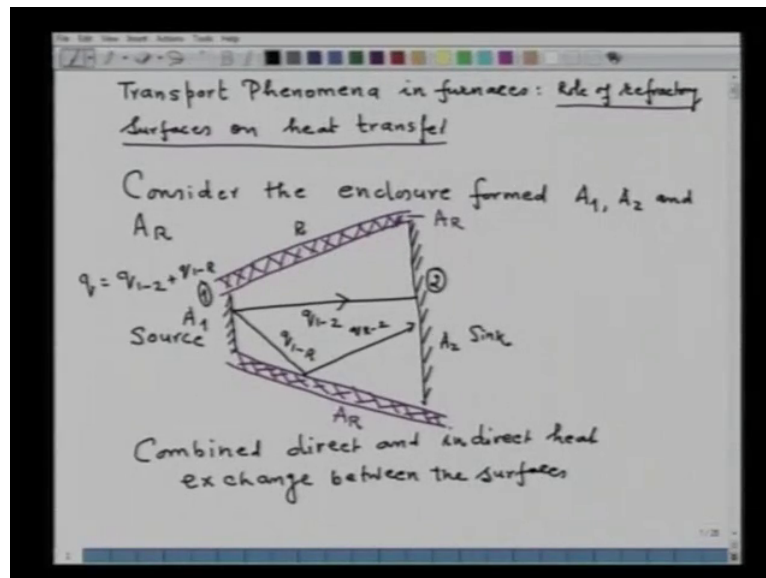 File Edit View Insert Actions Tools Help
Transport Phenomena in furnaces: Role of refractory
Surfaces on heat transfer
Consider the enclosure formed A1, A2 and
AR
R
AR
q = q1-2 + q1-R
1
2
A1
Source
q1-2
qR-2
q1-R
A2 Sink
AR
Combined direct and indirect heat
exchange between the surfaces